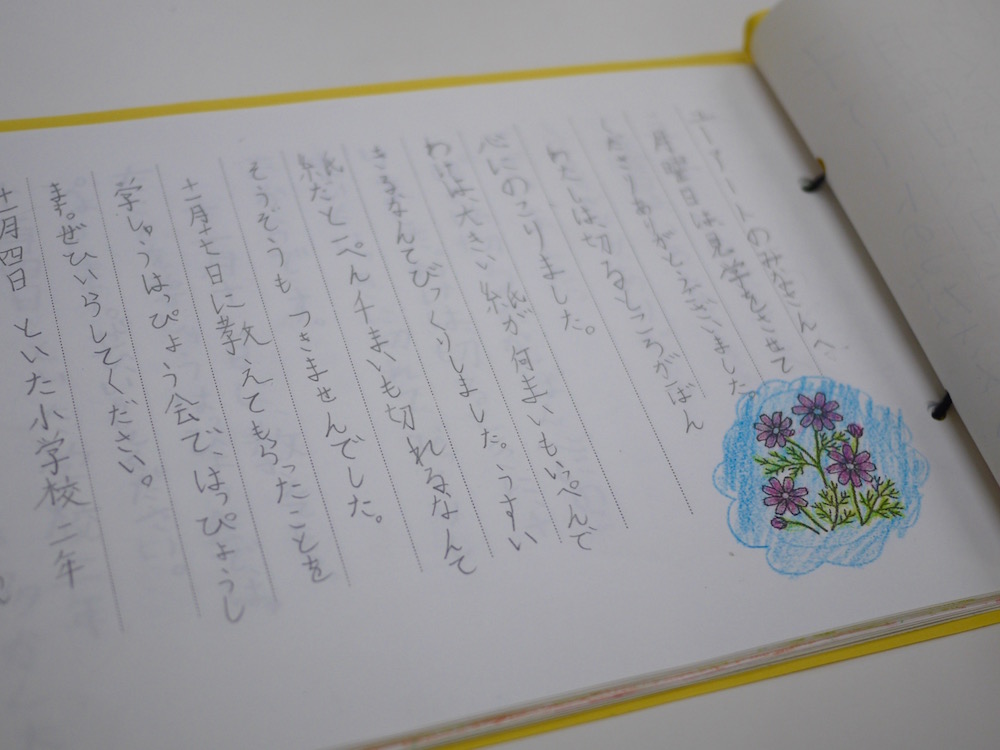 のみなさんへ
月曜日は見学をさせて
くださりありがとうございました。
わたしは切るところがばん
心にのこりました。
わけは、大きい紙が何まいもいっぺんで
きるなんてびっくりしました。うすい
紙だと一ぺん千まいも切れるなんて
そうぞうもつきませんでした。
十一月十七日に教えてもらったことを
学しゅうはっぴょう会で、はっぴょうし
ます。ぜひいらしてください。
十一月四日 といた小学校二年